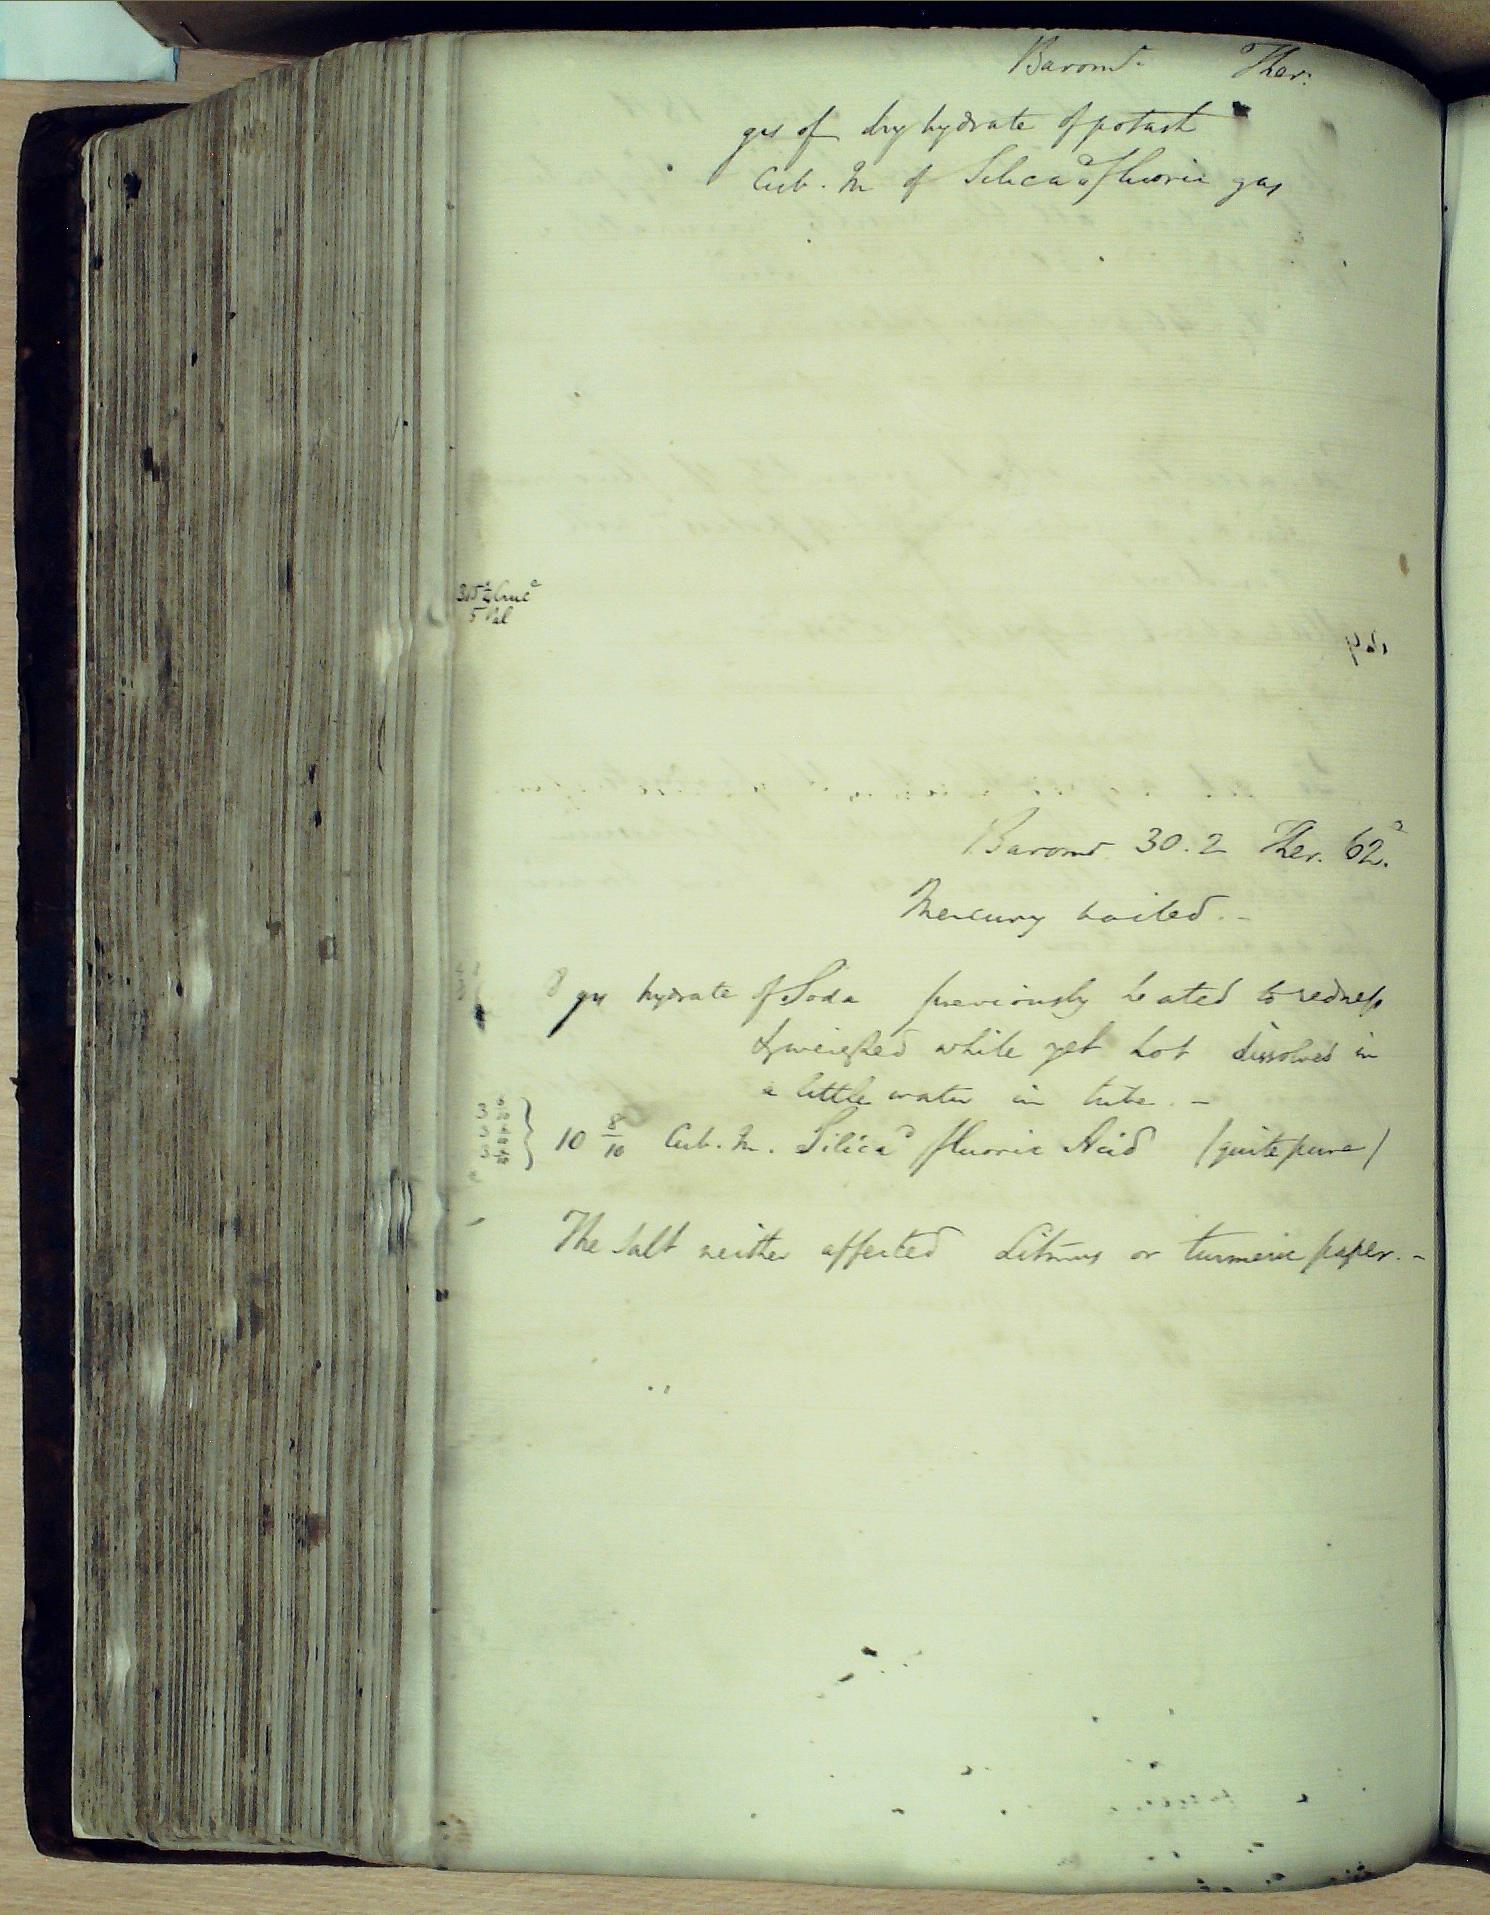 Baromr. Ther:
grs of dry hydrate of potash
Cub. In of Silicad fluoric gas
5 Pal
Baromr 30.2 Ther. 62.
Mercury boiled. -
8 grs hydrate of Soda previously heated to redness
& weighed while yet hot dissolved in
a little water in tube. -
10 8/10 Cub. In. Silicad fluoric Acid (quite pure)
The Salt neither affected Litmus or turmeric paper. -